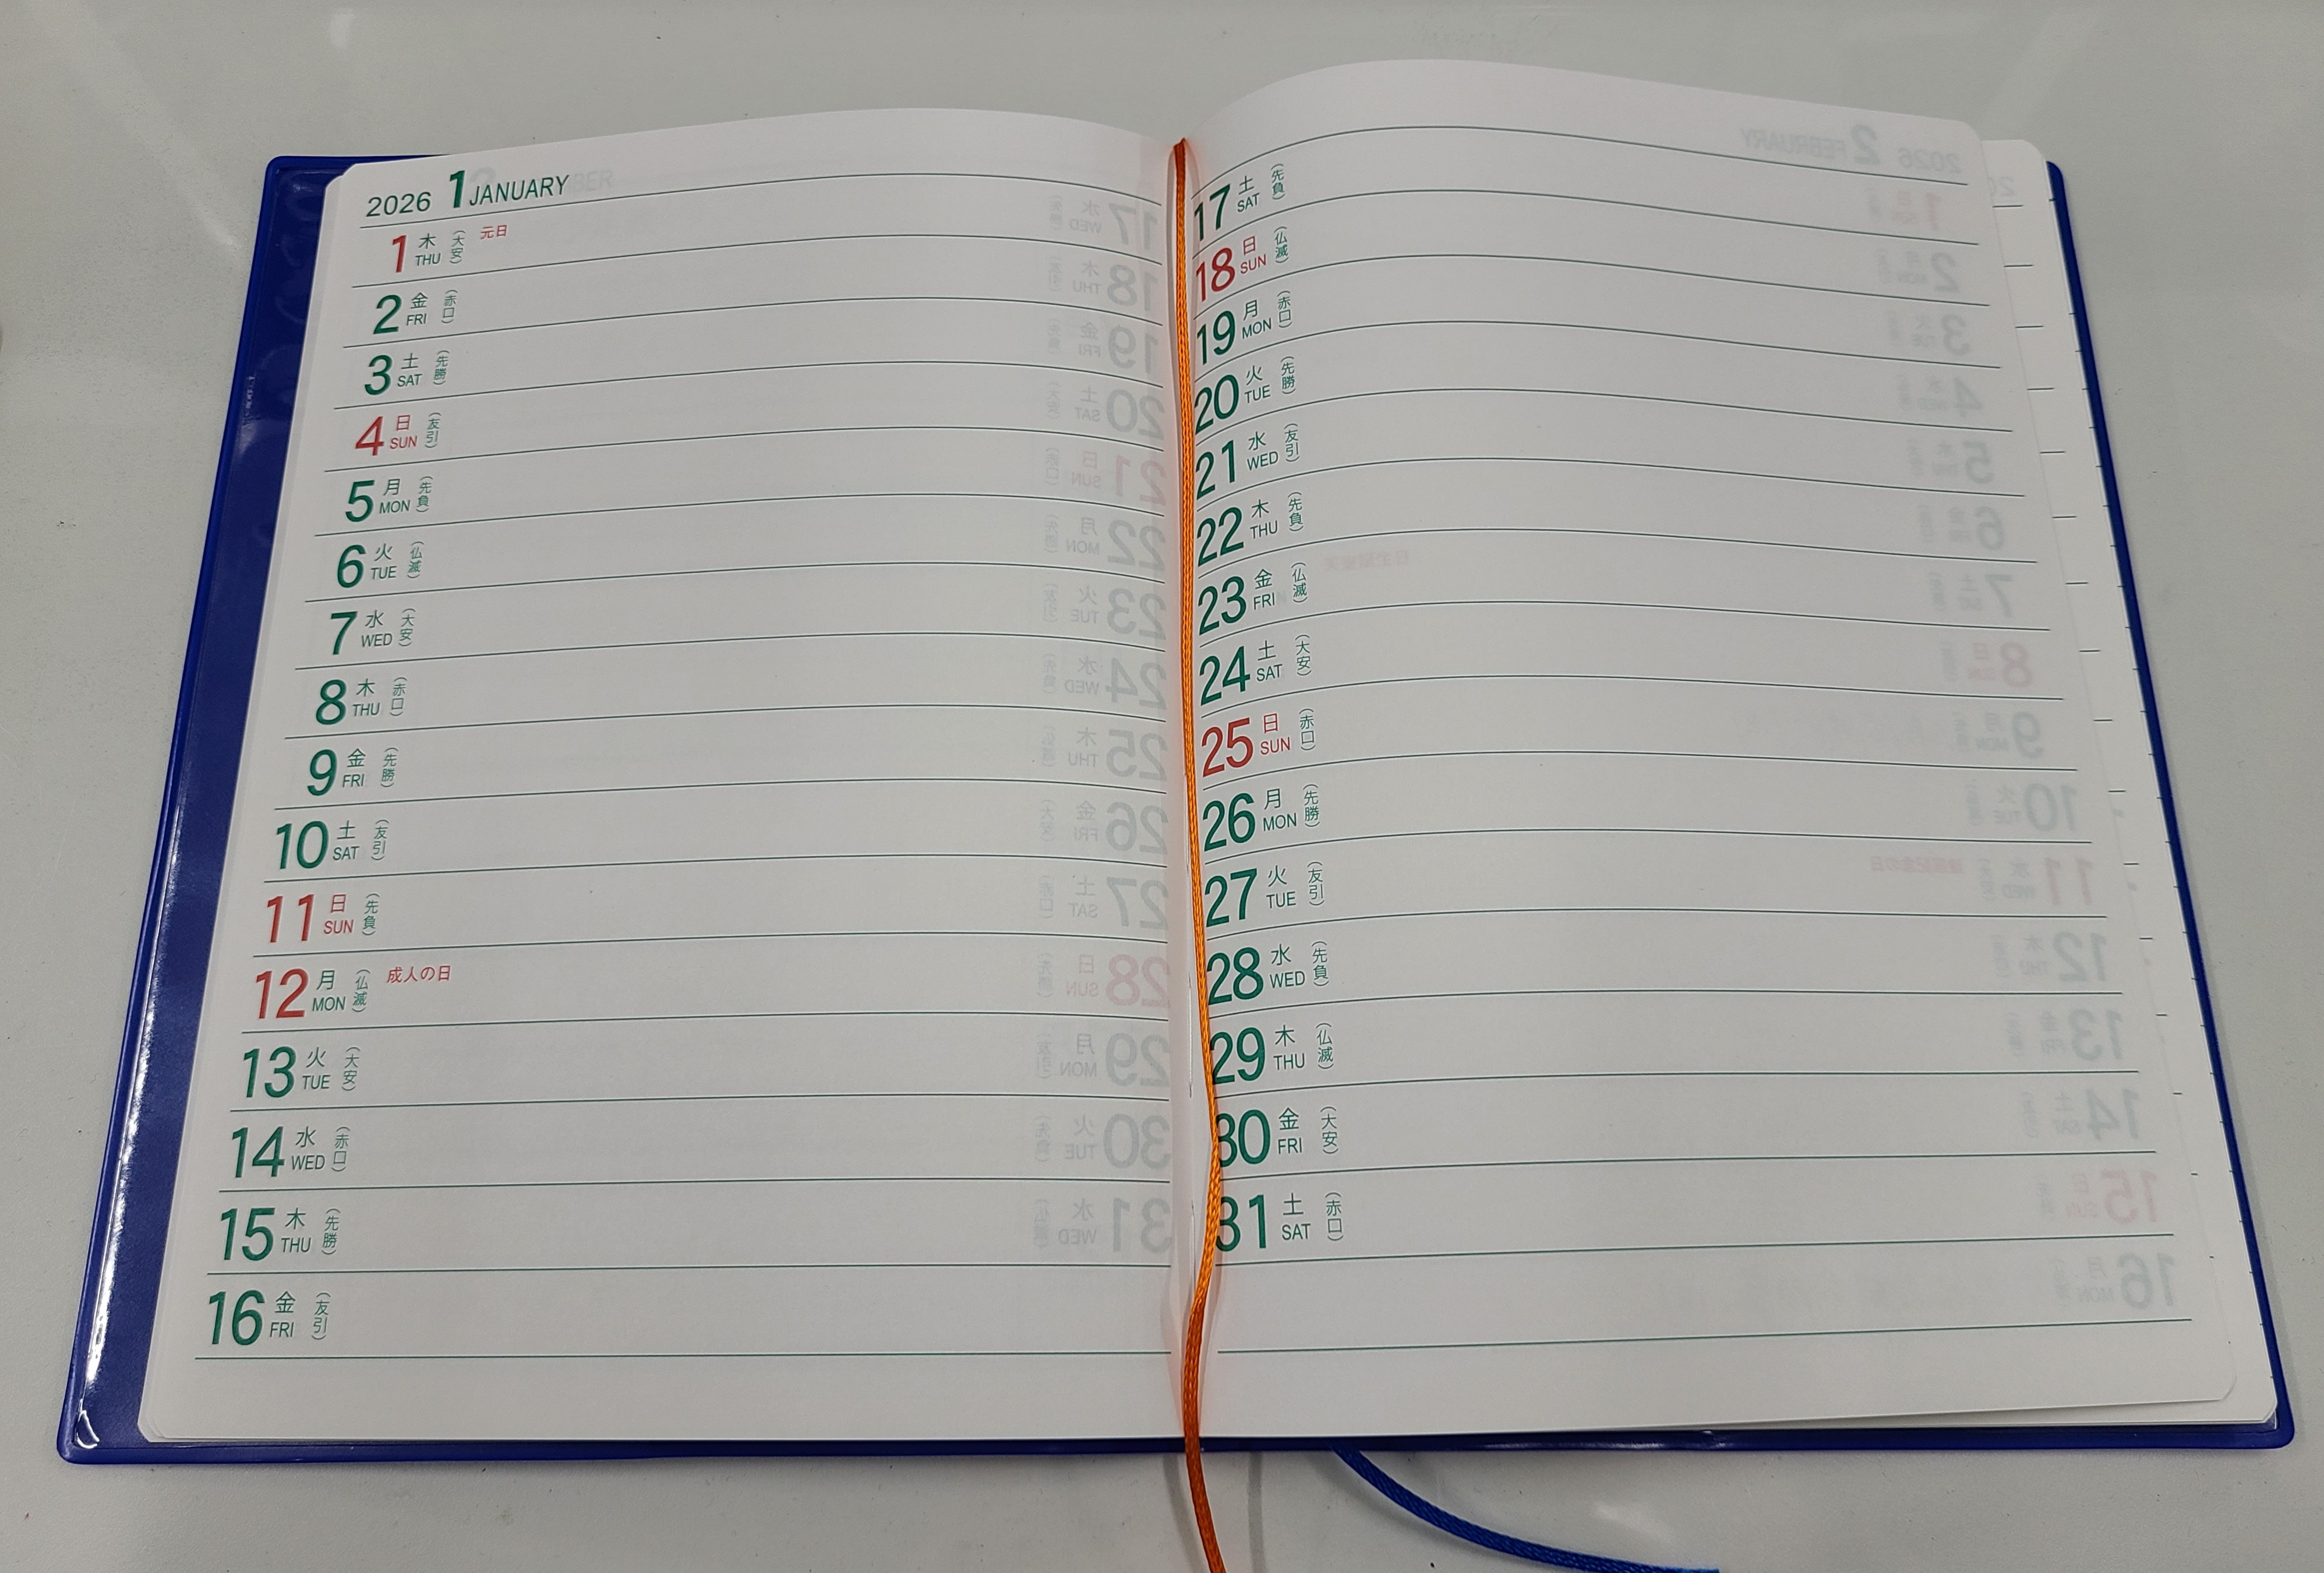 2026 1 JANUARY
1 木 THU (大安) 元日
2 金 FRI (赤口)
3 土 SAT (先勝)
4 日 SUN (友引)
5 月 MON (先負)
6 火 TUE (仏滅)
7 水 WED (大安)
8 木 THU (赤口)
9 金 FRI (先勝)
10 土 SAT (友引)
11 日 SUN (先負)
12 月 MON (仏滅) 成人の日
13 火 TUE (大安)
14 水 WED (赤口)
15 木 THU (先勝)
16 金 FRI (友引)
17 土 SAT (先負)
18 日 SUN (仏滅)
19 月 MON (赤口)
20 火 TUE (先勝)
21 水 WED (友引)
22 木 THU (先負)
23 金 FRI (仏滅)
24 土 SAT (大安)
25 日 SUN (赤口)
26 月 MON (先勝)
27 火 TUE (友引)
28 水 WED (先負)
29 木 THU (仏滅)
30 金 FRI (大安)
31 土 SAT (赤口)